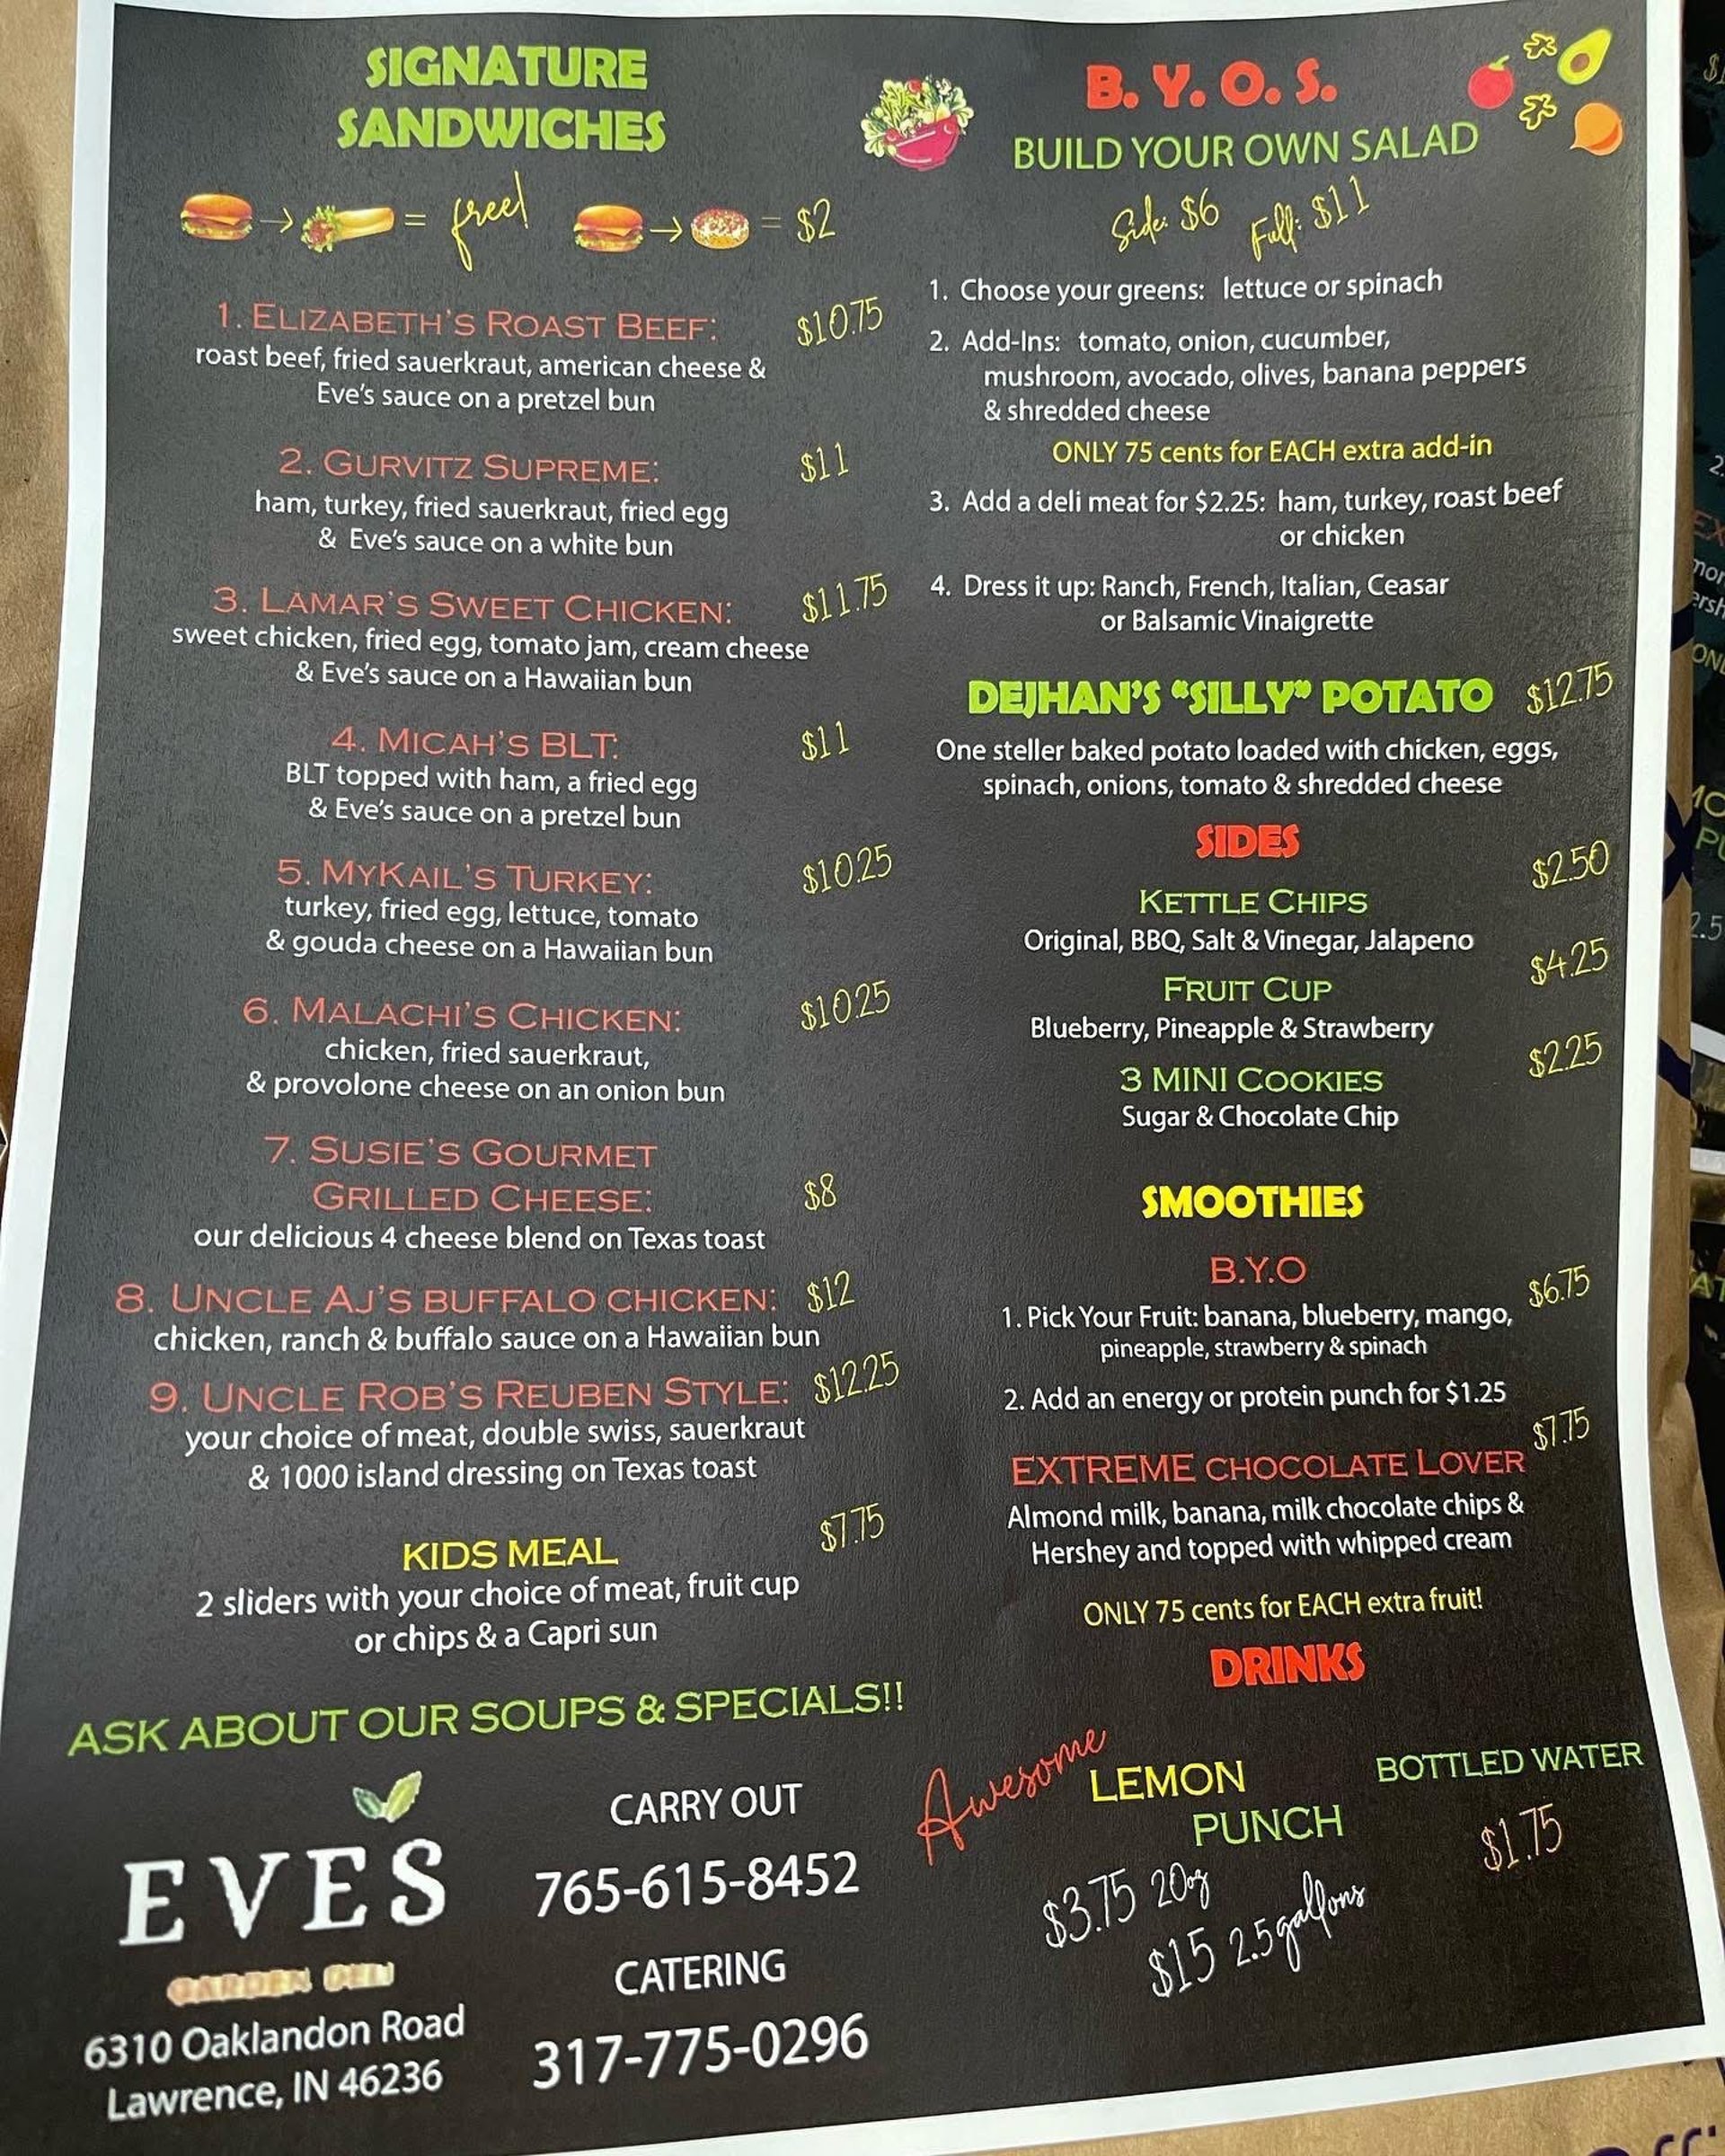 SIGNATURE
SANDWICHES
= free!
= $2
1. ELIZABETH'S ROAST BEEF: $10.75
roast beef, fried sauerkraut, american cheese &
Eve's sauce on a pretzel bun
2. GURVITZ SUPREME: $11
ham, turkey, fried sauerkraut, fried egg
& Eve's sauce on a white bun
3. LAMAR'S SWEET CHICKEN: $11.75
sweet chicken, fried egg, tomato jam, cream cheese
& Eve's sauce on a Hawaiian bun
4. MICAH'S BLT: $11
BLT topped with ham, a fried egg
& Eve's sauce on a pretzel bun
5. MYKAIL'S TURKEY: $10.25
turkey, fried egg, lettuce, tomato
& gouda cheese on a Hawaiian bun
6. MALACHI'S CHICKEN: $10.25
chicken, fried sauerkraut,
& provolone cheese on an onion bun
7. SUSIE'S GOURMET
GRILLED CHEESE: $8
our delicious 4 cheese blend on Texas toast
8. UNCLE AJ'S BUFFALO CHICKEN: $12
chicken, ranch & buffalo sauce on a Hawaiian bun
9. UNCLE ROB'S REUBEN STYLE: $12.25
your choice of meat, double swiss, sauerkraut
& 1000 island dressing on Texas toast
KIDS MEAL $7.75
2 sliders with your choice of meat, fruit cup
or chips & a Capri sun
ASK ABOUT OUR SOUPS & SPECIALS!!
EVES
GARDEN DELI
6310 Oaklandon Road
Lawrence, IN 46236
CARRY OUT
765-615-8452
CATERING
317-775-0296
B. Y. O. S.
BUILD YOUR OWN SALAD
Side: $6 Full: $11
1. Choose your greens: lettuce or spinach
2. Add-Ins: tomato, onion, cucumber,
mushroom, avocado, olives, banana peppers
& shredded cheese
ONLY 75 cents for EACH extra add-in
3. Add a deli meat for $2.25: ham, turkey, roast beef
or chicken
4. Dress it up: Ranch, French, Italian, Ceasar
or Balsamic Vinaigrette
DEJHAN'S "SILLY" POTATO $12.75
One steller baked potato loaded with chicken, eggs,
spinach, onions, tomato & shredded cheese
SIDES
KETTLE CHIPS $2.50
Original, BBQ, Salt & Vinegar, Jalapeno
FRUIT CUP $4.25
Blueberry, Pineapple & Strawberry
3 MINI COOKIES $2.25
Sugar & Chocolate Chip
SMOOTHIES
B.Y.O $6.75
1. Pick Your Fruit: banana, blueberry, mango,
pineapple, strawberry & spinach
2. Add an energy or protein punch for $1.25
EXTREME CHOCOLATE LOVER $7.75
Almond milk, banana, milk chocolate chips &
Hershey and topped with whipped cream
ONLY 75 cents for EACH extra fruit!
DRINKS
Awesome
LEMON
PUNCH
$3.75 20oz
$15 2.5 gallons
BOTTLED WATER
$1.75